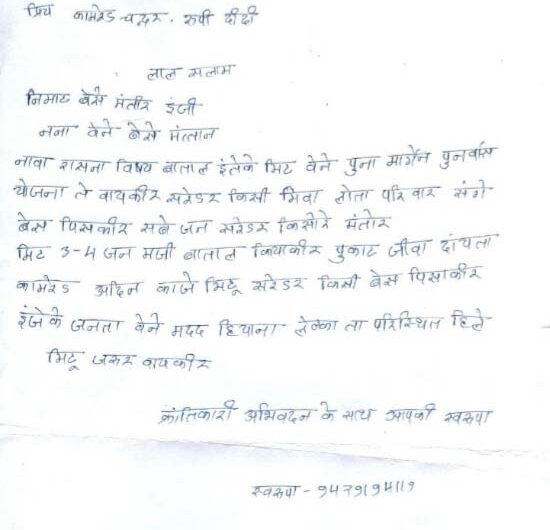 प्रिय कामरेड-चन्दर, रुपी दीदी
लाल सलाम
निमाट बेसे मंतीर इंजी
नना वेने बेसे मंत्तान
नावा रासना विषय बाताल इंतेके मिट वेने पुना मार्गेन पुनर्वास
योजना ते वायकीर सरेंडर किसी मिवा लोता परिवार संगे
बेस पिसकीर सबे जन सरेंडर किसोरे मंतोर
मिट 3-4 जन मजी बाताल कियाकीर पुकाट जीवा दांयता
कामरेड अदिन काजे मिटू सरेंडर किसी बेस पिसाकीर
इंजेके जनता वेने मदद हियाना लेक्का ता परिस्थित हिले
मिटू जरूर वायकीर
क्रांतिकारी अभिवदन के साथ आपकी स्वरूपा
स्वरूपा - ९4२9१94119